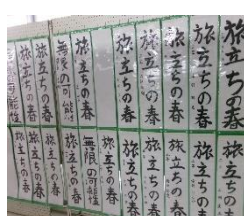 旅立ちの春
旅立ちの春
旅立ちの春
旅立ちの春
旅立ちの春
無限の可能性
旅立ちの春
旅立ちの春
無限の可能性
旅立ちの春
旅立ちの春
旅立ちの春
旅立ちの春
無限の可能性
旅立ちの春
旅立ちの春
旅立ちの春
旅立ちの春